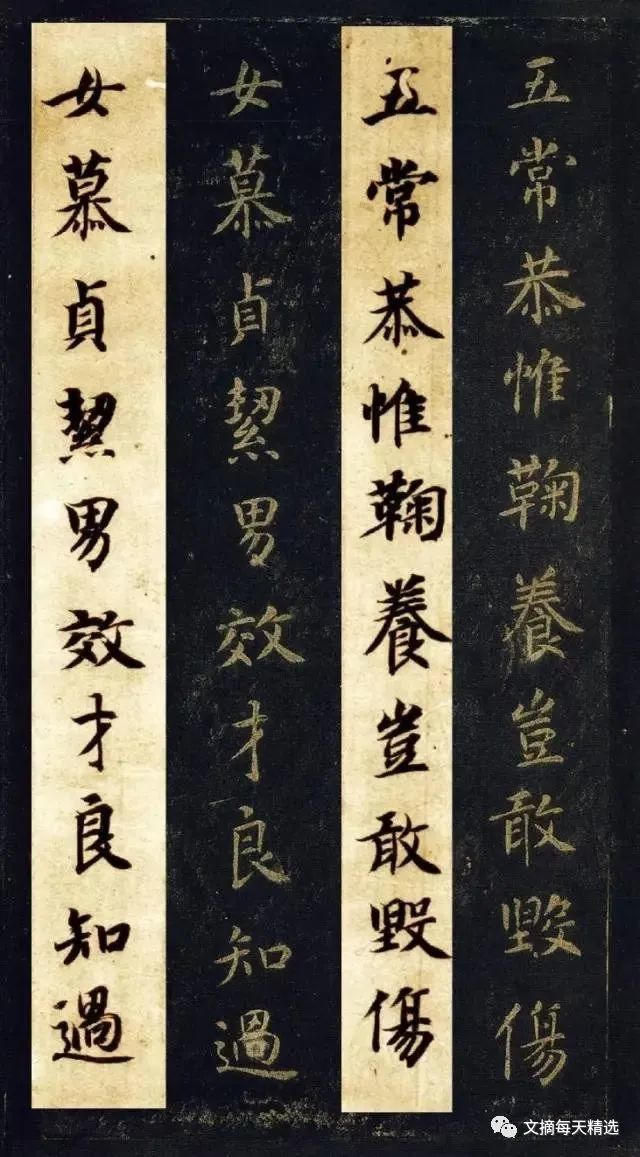 五常恭惟鞠養豈敢毀傷
五常恭惟鞠養豈敢毀傷
女慕貞絜男效才良知過
女慕貞絜男效才良知過
文摘每天精选